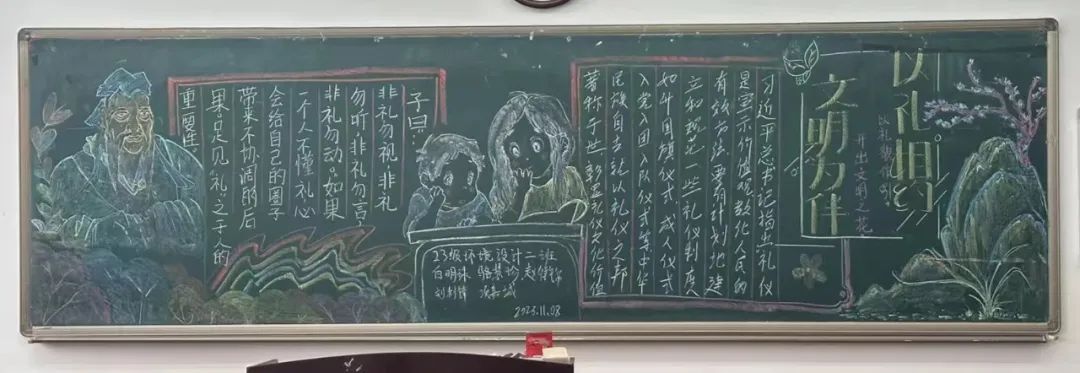 以礼相约
文明为伴
以礼貌做
开出文明之花
习近平总书记指出，礼仪
是宣示价值观、教化人民的
有效方法，要有计划地建
立和规范一些礼仪制度，
如升国旗仪式、成人仪式、
入党入团入队仪式等。中华
民族自古就以礼仪之邦
著称于世，
礼仪文化价值
子曰：
非礼勿视，非礼
勿听，非礼勿言，
非礼勿动。如果
一个人不懂礼，心
会给自己的圈子
带来不协调的后
果。足见“礼”之于人的
重要性。
23级环境设计二班
白明沫
2023.11.08